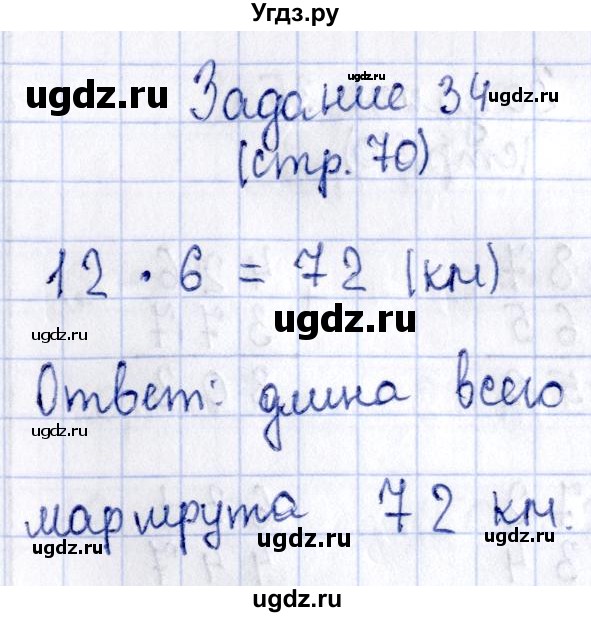 Угдз.ру
ugdz.ru
ugdz.ru Задание 34 ugdz.ru
(стр. 70)
12 · 6 = 72 (км)
ugdz.ru ugdz.ru
Ответ: длина всего
ugdz.ru
маршрута 72 км.
ugdz.ru ugdz.ru ugdz.ru
ugdz.ru